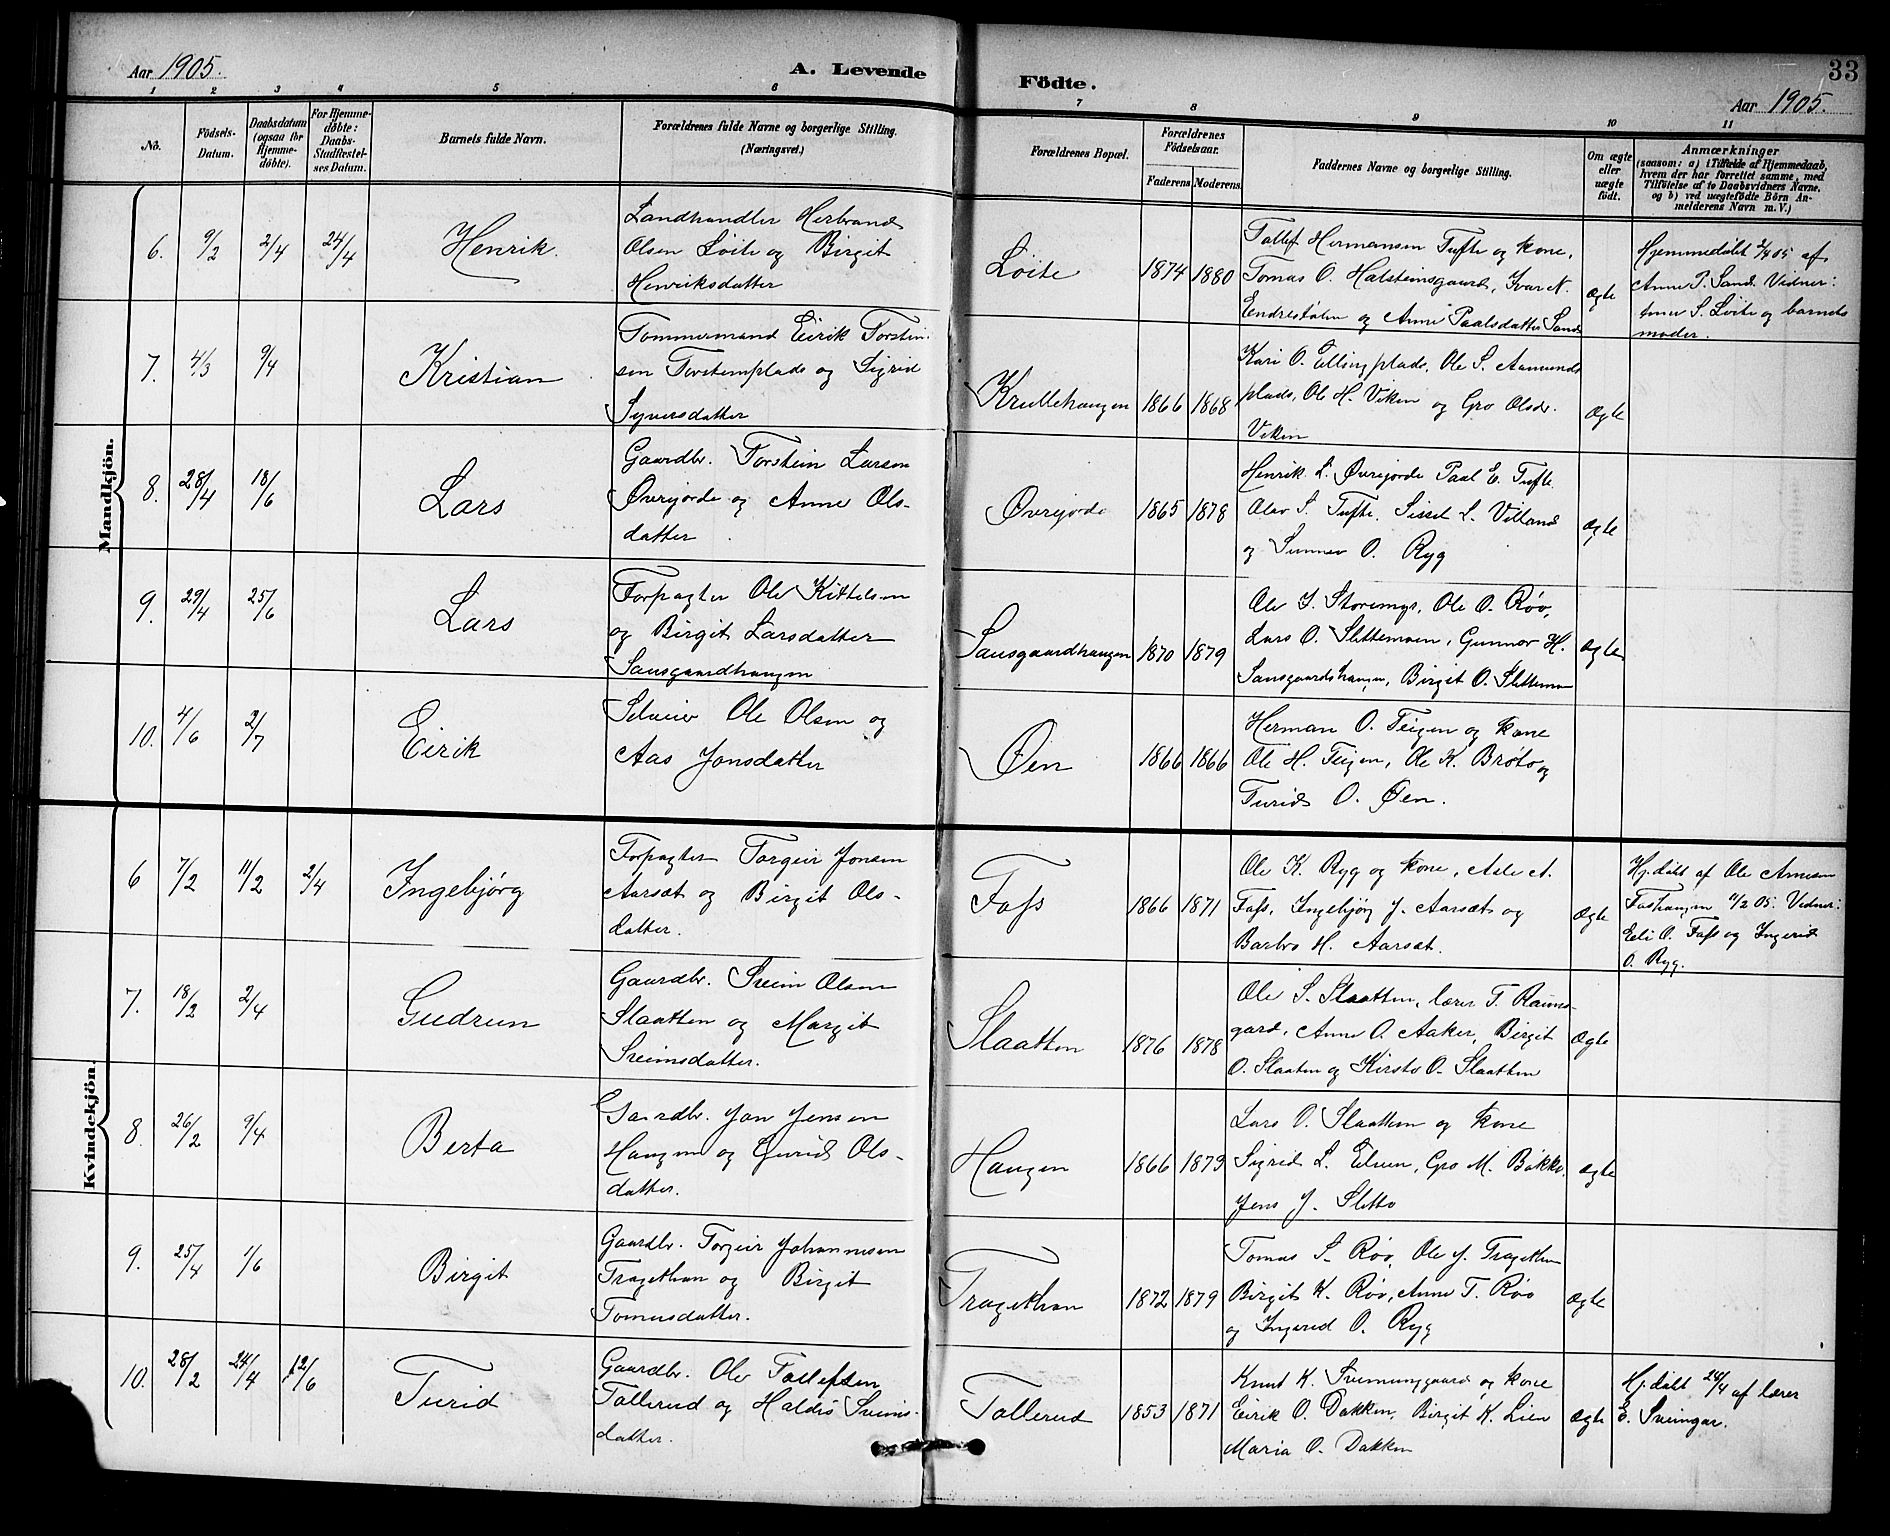 33
Aar 1905.
A. Levende
Födte.
Aar 1905.
1 2 3 4 5 6 7 8 9 10 11
No.
Födsels-
Datum.
Daabsdatum
(ogsaa for
Hjemme-
døbte).
For Hjemme-
døbte:
Daabs-
Stadfæstel-
ses Datum.
Barnets fulde Navn.
Forældrenes fulde Navne og borgerlige Stilling.
(Næringsvei.)
Forældrenes Bopæl.
Forældrenes
Födselsaar.
Faderens Moderens
Faddernes Navne og borgerlige Stilling.
Om ægte
eller
uægte
födt.
Anmærkninger
(saasom: a) i Tilfælde af Hjemmedaab,
hvem der har forrettet samme, med
Tilföielse af to Daabsvidners Navne.
og b) ved uægtefödte Börn An-
melderens Navn m. V.)
Mandkjön.
6. 9/2 2/4 24/4 Henrik.
Landhandler Herbrand
Olsen Löite og Birgit
Henriksdatter
Löite 1874 1880
Tollef Hermansen Tufte og kone,
Tomas O. Halsteinsgaard, Ivar N.
Endrestölen og Anne Paalsdatter Sand
Ægte
Hjemmedöbt 2/4 05 af
Anne P. Sand. Vidner:
S. Löite og barnets
moder.
7. 4/3 9/4 Kristian
Tömmermand Eirik Torstein-
sen Torsteinplads og Sigrid
Syversdatter
Krullehaugen 1866 1868
Kari O. Ellingplads, Ole S. Aamunds
plads, Ole H. Viken og Gro Olsdr.
Viken
Ægte
8. 28/4 18/6 Lars
Gaardbr. Torstein Larsen
Øvrejorde og Anne Ols-
datter
Øvrejorde 1865 1878
Henrik L. Øvrejorde Paal E. Tufte
Olav S. Tufte, Sissel L. Villand
og Sunnev O. Ryg
Ægte
9. 29/4 25/6 Lars
Forpagter Ole Kittelsen
og Birgit Larsdatter
Sausgaardhaugen
Sausgaardhaugen 1870 1879
Ole I. Storemyr, Ole O. Røv,
Lars O. Slettemoen, Gunnor H.
Sausgaardshaugen, Birgit O. Slettemoen
Ægte
10. 4/6 2/7 Eirik
Selveier Ole Olsen og
Aas Jonsdatter
Øen 1866 1866
Herman O. Teigen og kone
Ole H. Teigen, Ole K. Bröto og
Turid O. Øen.
Kvindekjön.
6 7/2 11/2 2/4 Ingebjörg
Forpagter Torgeir Jonsen
Aarsæt og Birgit Ols-
datter.
Fass 1866 1871
Ole K. Ryg og kone, Asle A.
Fass, Ingebjörg J. Aarsæt og
Barbro H. Aarsæt.
Ægte
Hj.döbt af Ole Arnesen
Fashaugen 11/2 05. Vidner:
Eli O. Fass og Ingerid
O. Ryg.
7. 18/2 2/4 Gudrun
Gaardbr. Svein Olsen
Slaatten og Margit
Sveinsdatter.
Slaatten 1876 1878
Ole S. Slaatten, lærer T. Rauns-
gard, Anne O. Aaker, Birgit
O. Slaaten og Kirsto O. Slaatten
Ægte
8. 26/2 9/4 Berta
Gaardbr. Jon Jensen
Haugen og Gurid Ols-
datter.
Haugen 1866 1879
Lars O. Slaatten og kone
Sigrid L. Elsen, Gro M. Bökko.
Jens J. Sletto
Ægte
9. 25/4 1/6 Birgit
Gaardbr. Torgeir Johannesen
Tragethon og Birgit
Tomasdatter.
Tragethon 1872 1879
Tomas S. Røv, Ole J. Tragethon
Birgit K. Røv, Anne T. Røv
og Ingerid O. Ryg
Ægte
10. 28/2 24/4 12/6 Turid
Gaardbr. Ole Tollefsen
Tollerud og Haldis Sveins-
datter.
Tollerud 1853 1871
Knut K. Sveinunggaard og kone
Eirik O. Dokken, Birgit K. Lien
Maria O. Dokken
Ægte
Hj.döbt 24/4 af lærer
E. Sveingar.